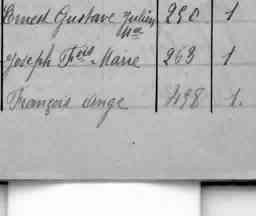 Ernest Gustave Julien Mie 290 1
Joseph Fois Marie 263 1
François Ange 498 1.